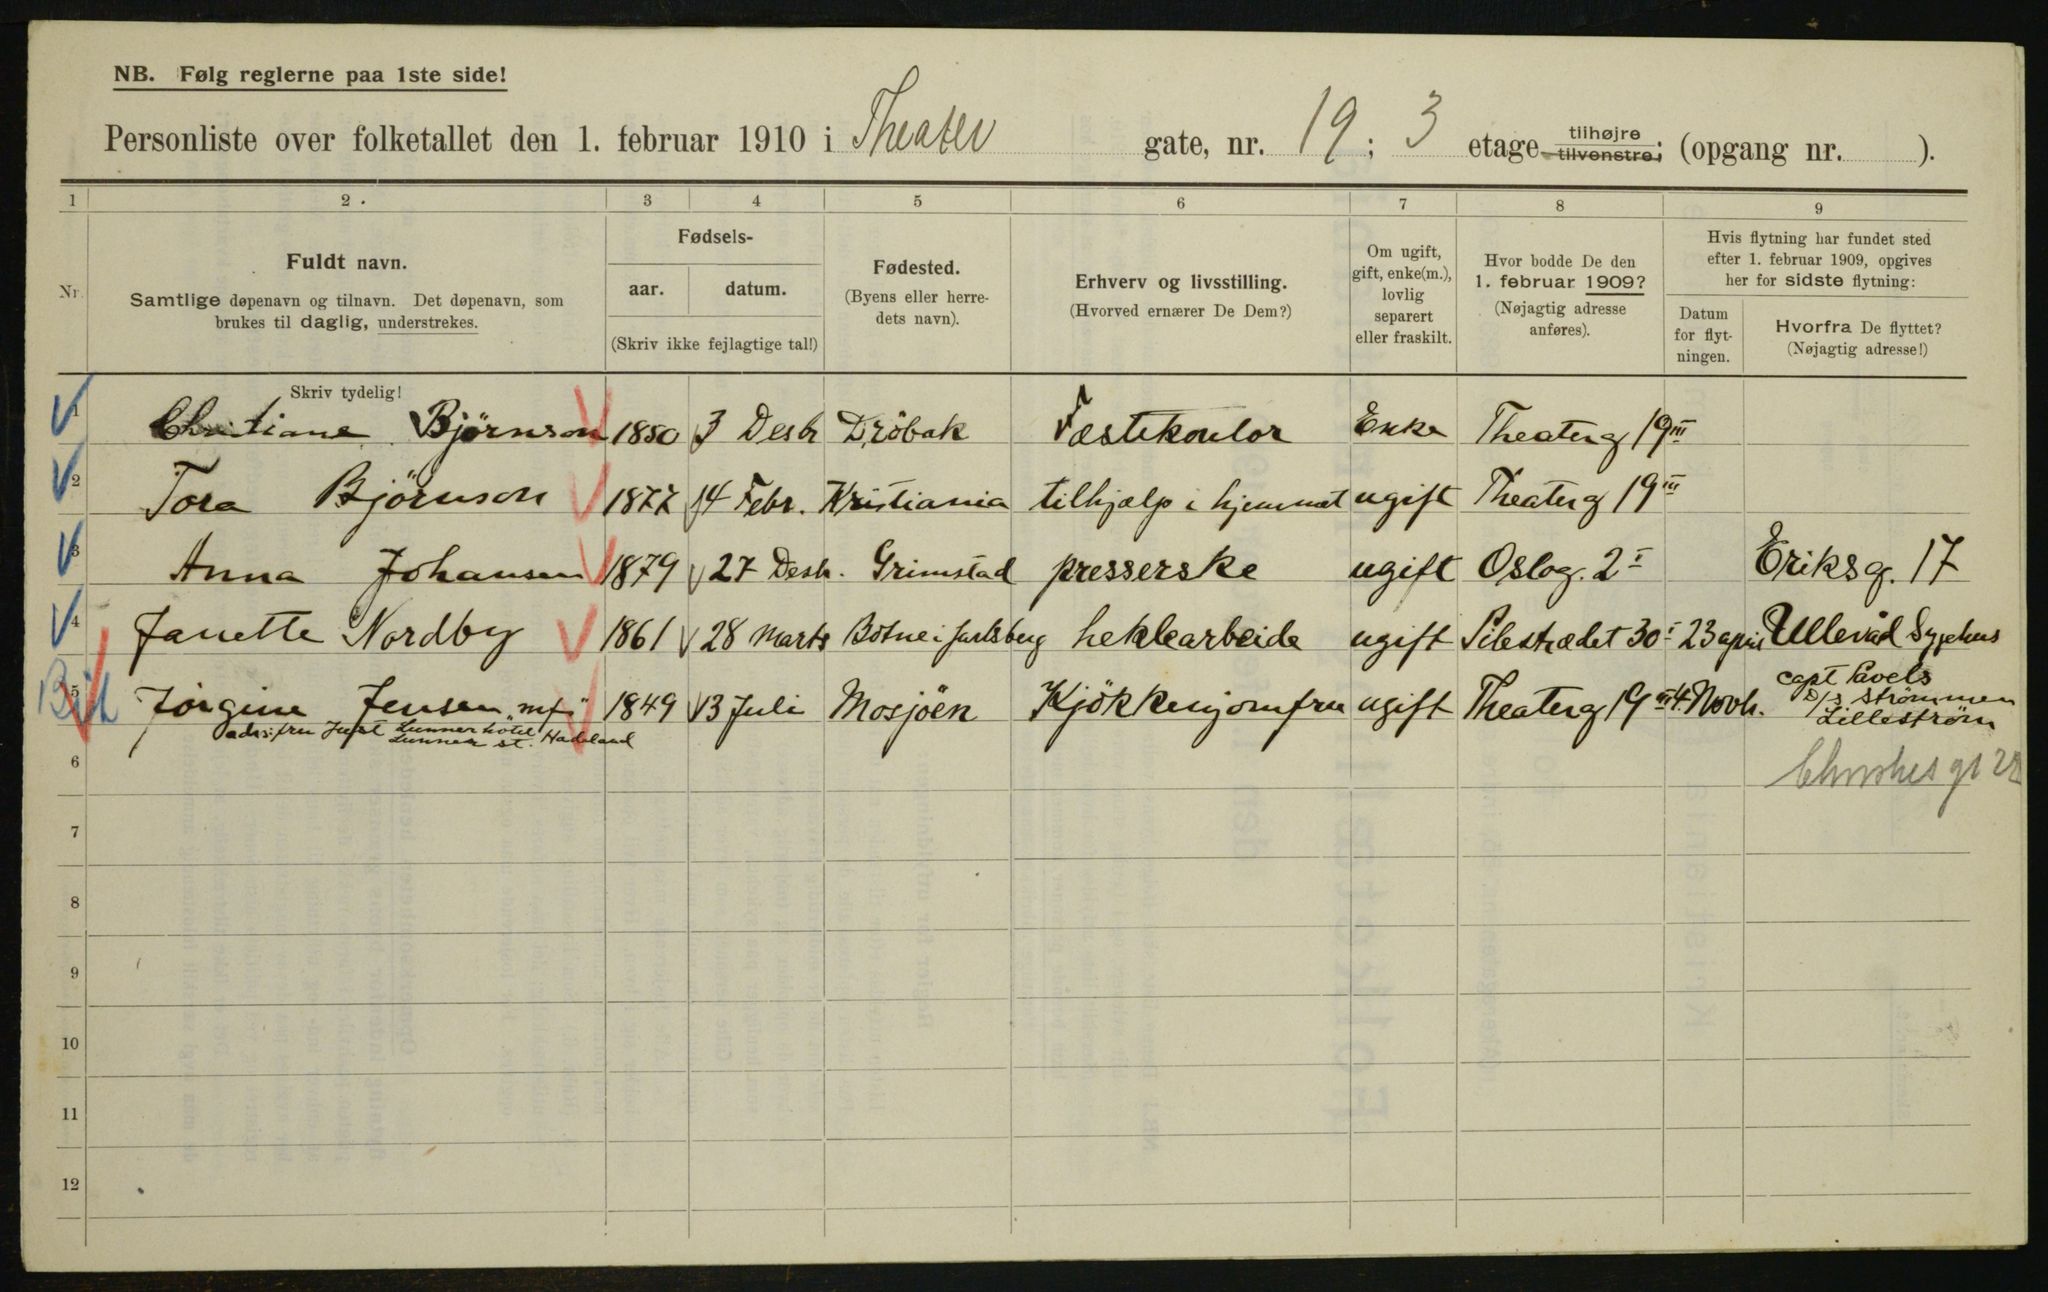 NB. Følg reglerne paa 1ste side!
Personliste over folketallet den 1. februar 1910 i Theater gate, nr. 19; 3 etage tilhøjre tilvenstre; (opgang nr. ).
1 2. 3 4 5 6 7 8 9
Nr.
Fuldt navn.
Samtlige døpenavn og tilnavn. Det døpenavn, som
brukes til daglig, understrekes.
Fødsels-
aar. datum.
(Skriv ikke fejlagtige tal!)
Fødested.
(Byens eller herre-
dets navn).
Erhverv og livsstilling.
(Hvorved ernærer De Dem?)
Om ugift,
gift, enke(m.),
lovlig
separert
eller fraskilt.
Hvor bodde De den
1. februar 1909?
(Nøjagtig adresse
anføres).
Hvis flytning har fundet sted
efter 1. februar 1909, opgives
her for sidste flytning:
Datum
for flyt-
ningen.
Hvorfra De flyttet?
(Nøjagtig adresse!)
Skriv tydelig!
1 Christiane Björnson 1850 3 Desbr Dröbak Fæstekontor Enke Theaterg 19 III
2 Tora Björnson 1877 14 Febr. Kristiania tilhjælp i hjemmet ugift Theaterg 19 III
3 Anna Johansen 1879 27 Desbr. Grimstad presserske ugift Oslog. 2 I Eriksg. 17
4 Janette Nordby 1861 28 Marts Botne i Jarlsberg heklearbeide ugift Pilestrædet 30 I 23 april Ullevåd Sygehus
5 Jørgine Jensen "mf" 1849 13 Juli Mosjöen Kjökkenjomfru ugift Theaterg 19 III 4 Novb. capt Pavels
D/s Strømmen
Lillestrøm
adrs: fru Just Lunner hotel
Lunner st. Hadeland
6
7
8
9
10
11
12